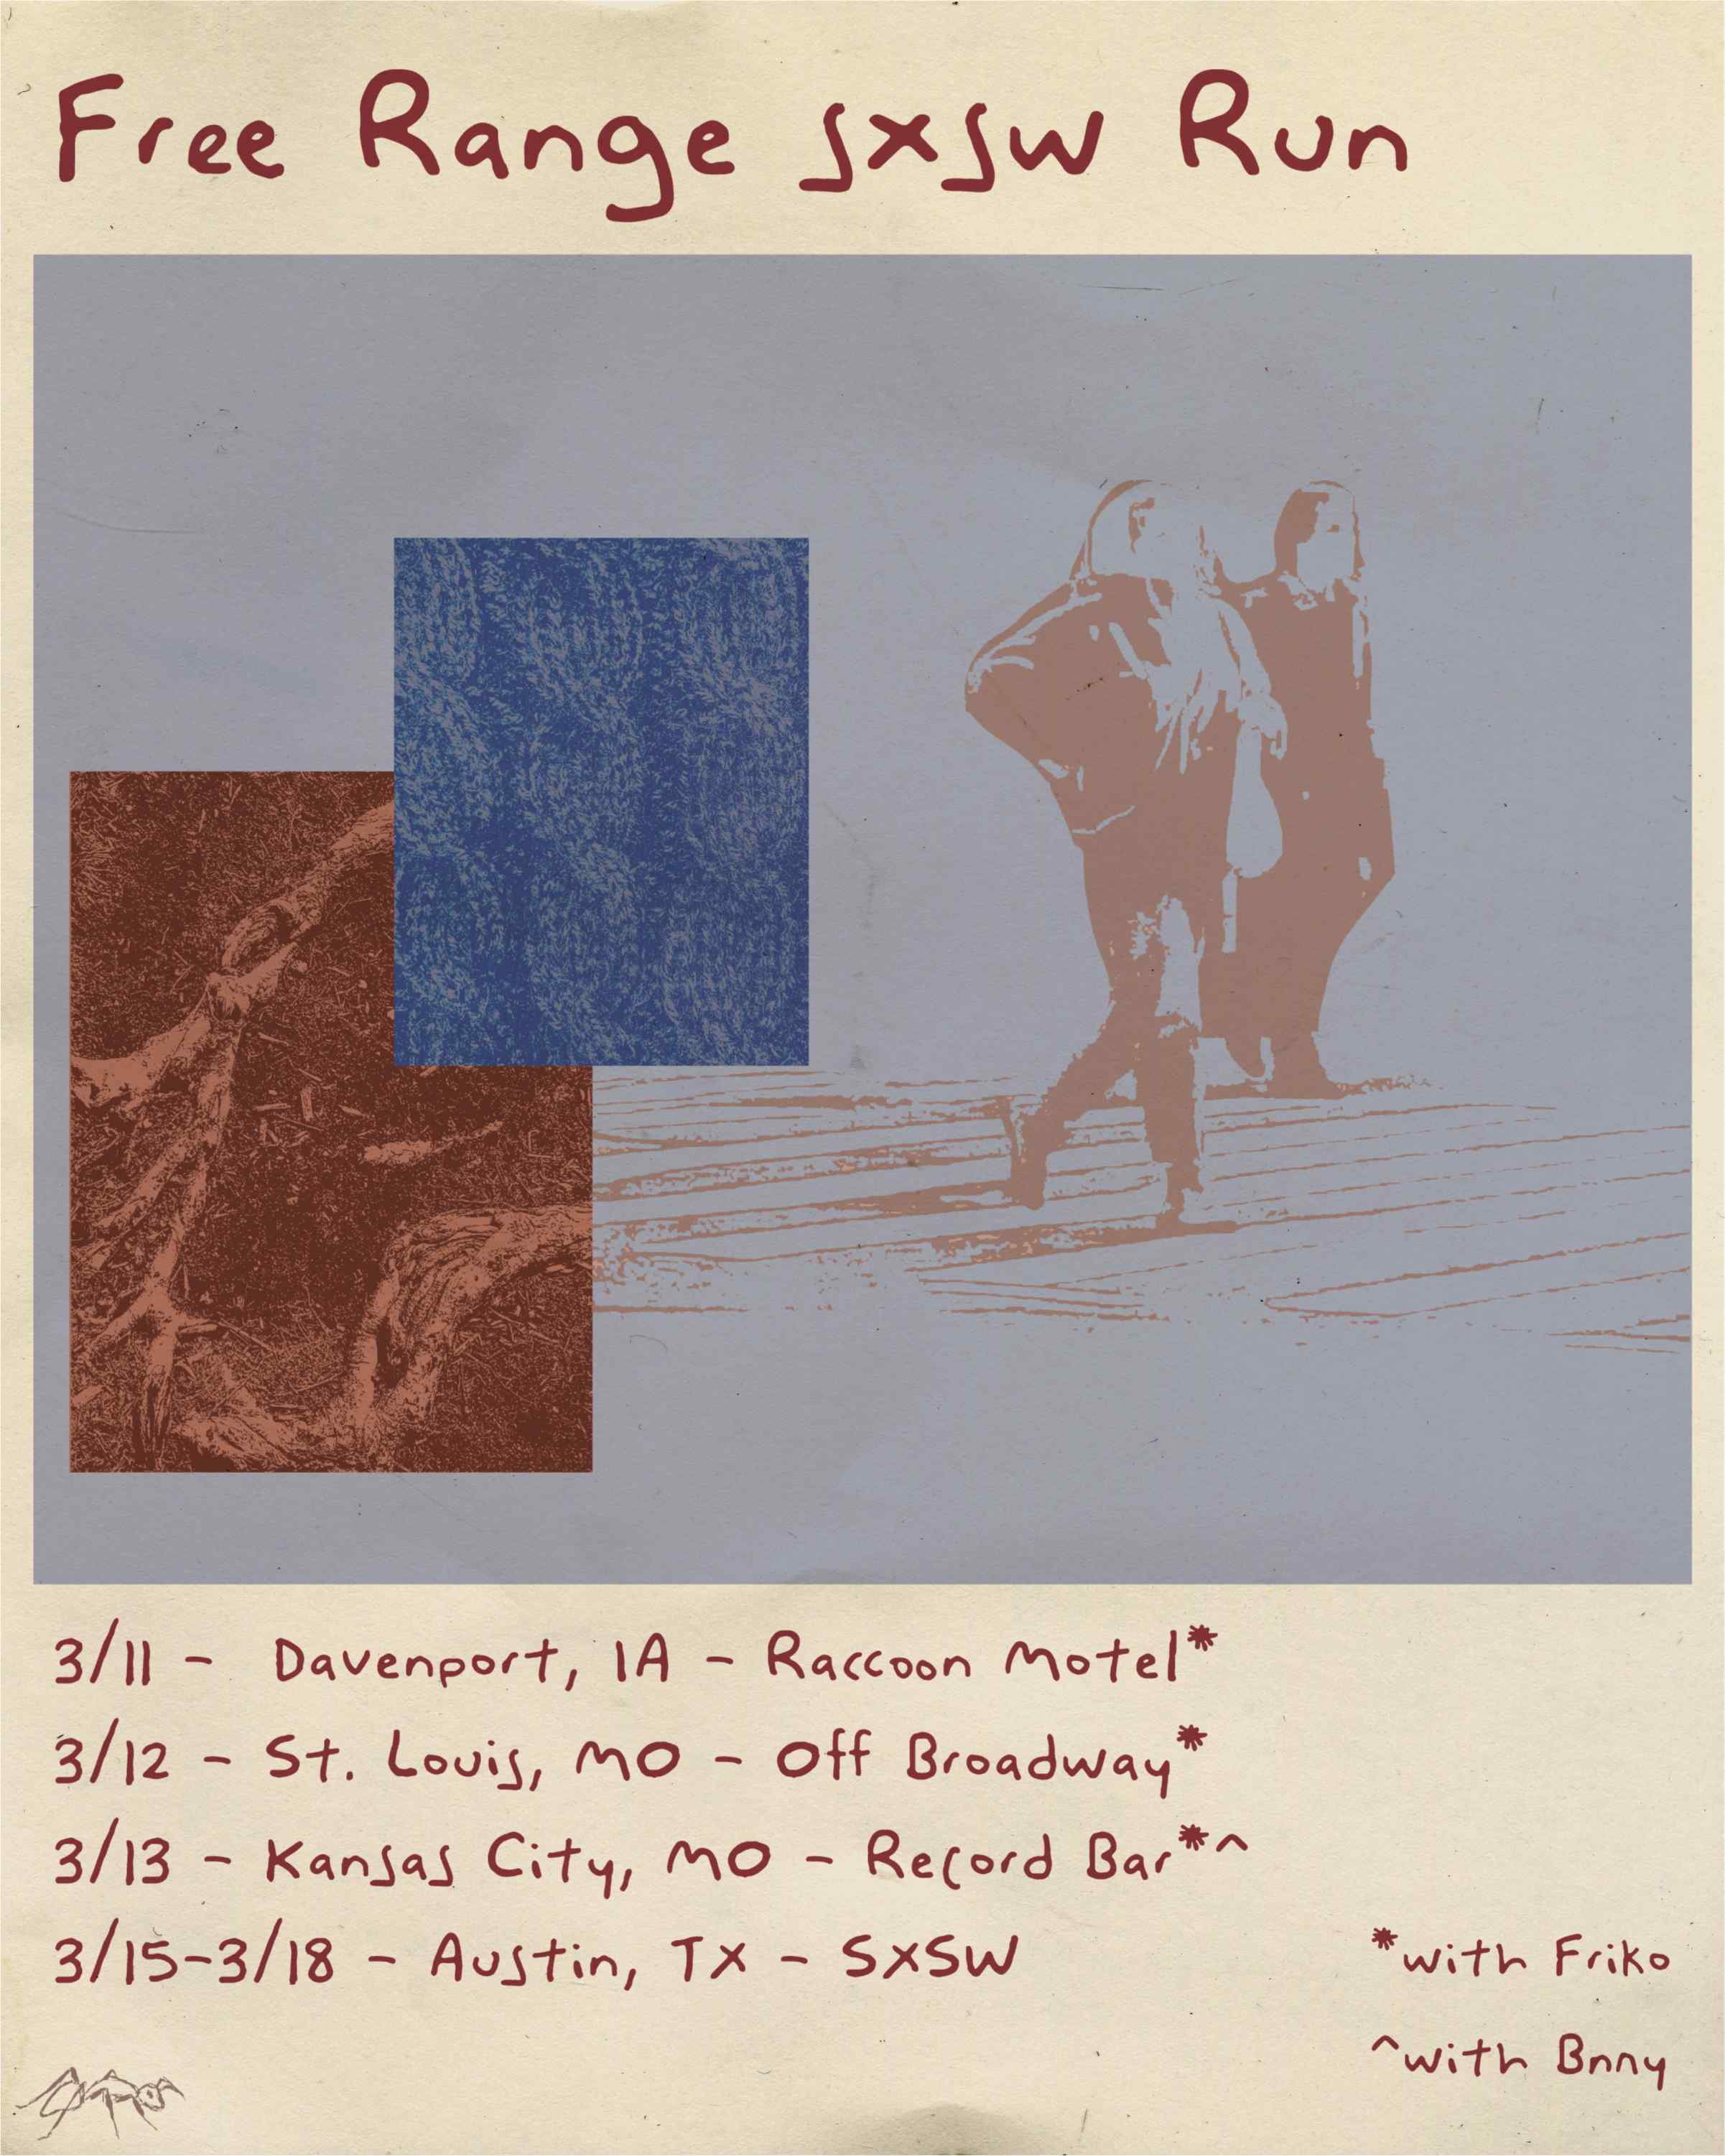 Free Range SXSW Run
3/11 - Davenport, IA - Raccoon Motel*
3/12 - St. Louis, MO - Off Broadway*
3/13 - Kansas City, MO - Record Bar*^
3/15-3/18 - Austin, TX - SXSW
*with Friko
^with Bnny